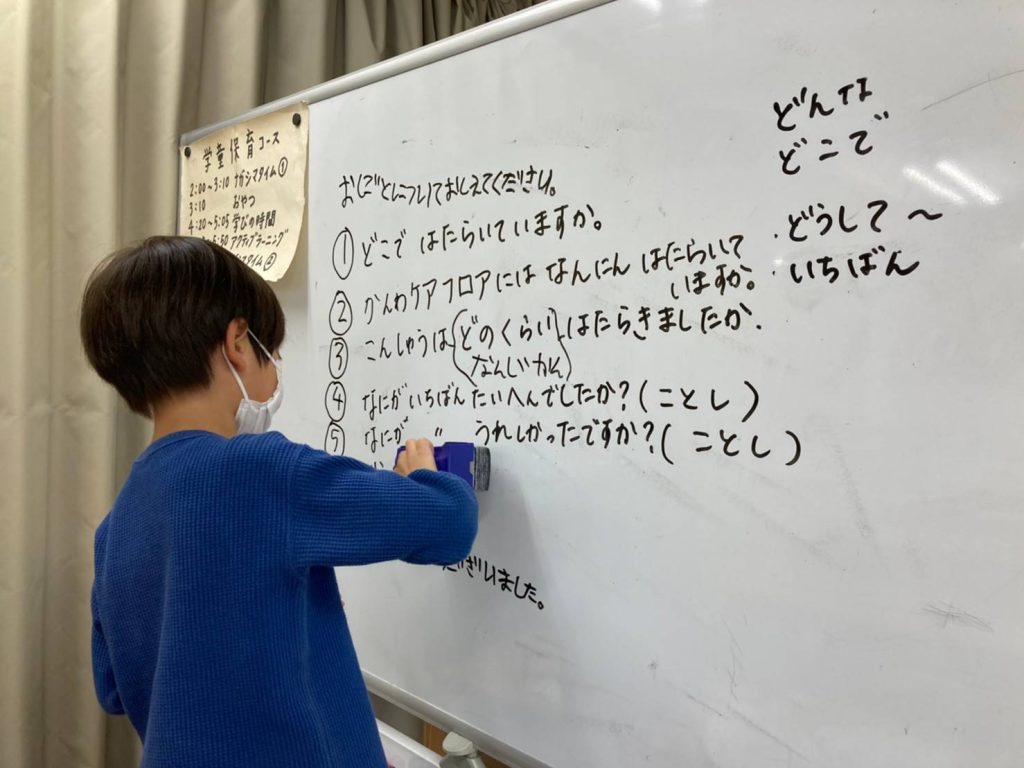 学童保育コース
2:00～3:10 ナガシマタイム①
3:10 おやつ
4:20～5:05 学びの時間
5:50 アクティブラーニング
タイム②
おしごとについておしえてください。
① どこで はたらいていますか。
② かんわケアフロアには なんにん はたらいて
いますか。
③ こんしゅうは(どのくらい)はたらきましたか.
(なんじかん)
④ なにがいちばん たいへんでしたか?(ことし)
⑤ なにが 〃 うれしかったですか?(ことし)
ざいました。
どんな
どこで
・どうして～
・いちばん